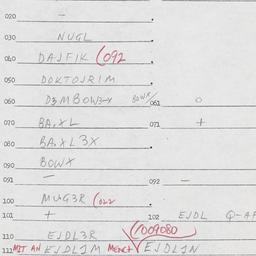 020 —
030 NUGL
040 DAJFIK (092
050 DOKTOJRIM
060 D3MBOW3Y BOWX/061 O
070 BA.XL 071 +
080 BA.XL3X
090 BOWX
091 — 092 —
100 MUG3R (022
101 + 102 EJDL Q-AF
110 EJDL3R (1009080
111 MIT AN EJDL1M MENCH EJDL1N